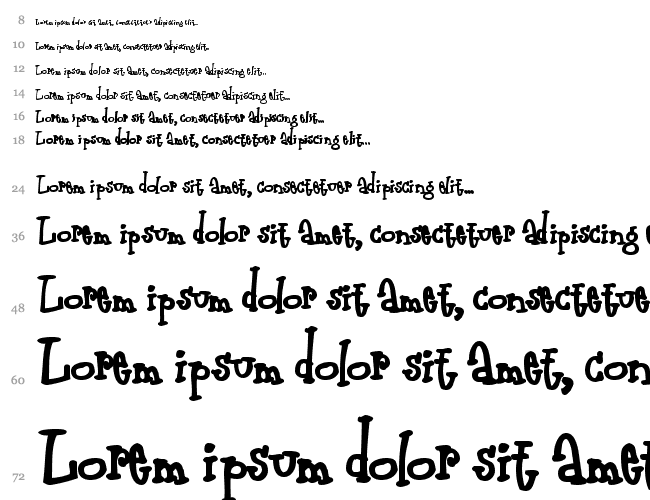 8 Lorem ipsum dolor sit amet, consectetuer adipiscing elit...
10 Lorem ipsum dolor sit amet, consectetuer adipiscing elit...
12 Lorem ipsum dolor sit amet, consectetuer adipiscing elit...
14 Lorem ipsum dolor sit amet, consectetuer adipiscing elit...
16 Lorem ipsum dolor sit amet, consectetuer adipiscing elit...
18 Lorem ipsum dolor sit amet, consectetuer adipiscing elit...
24 Lorem ipsum dolor sit amet, consectetuer adipiscing elit...
36 Lorem ipsum dolor sit amet, consectetuer adipiscing
48 Lorem ipsum dolor sit amet, consectetue
60 Lorem ipsum dolor sit amet, con
72 Lorem ipsum dolor sit amet